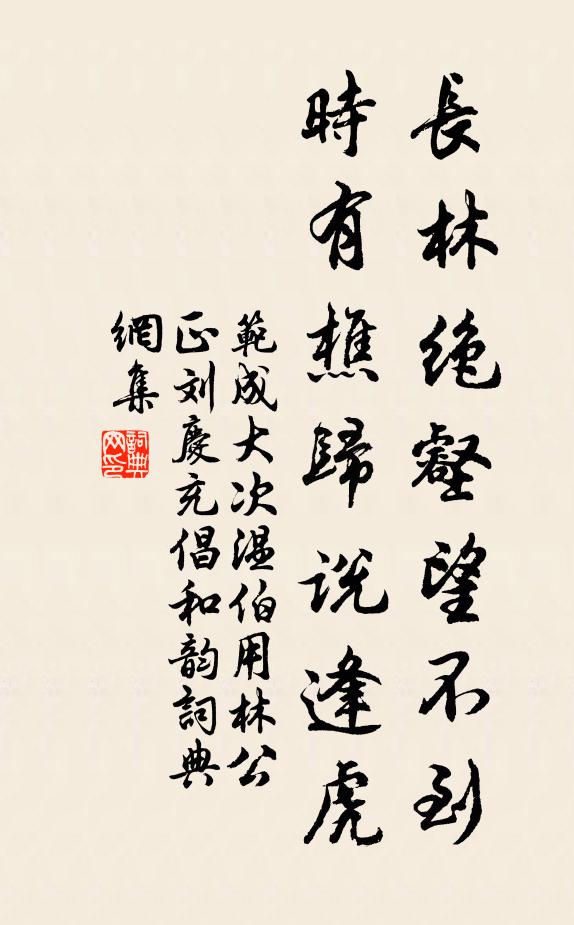 長林絶壑望不到
時有樵歸説逢虎
範成大次温伯用林公
正刘慶充倡和韵詞典
網集
詞典网印